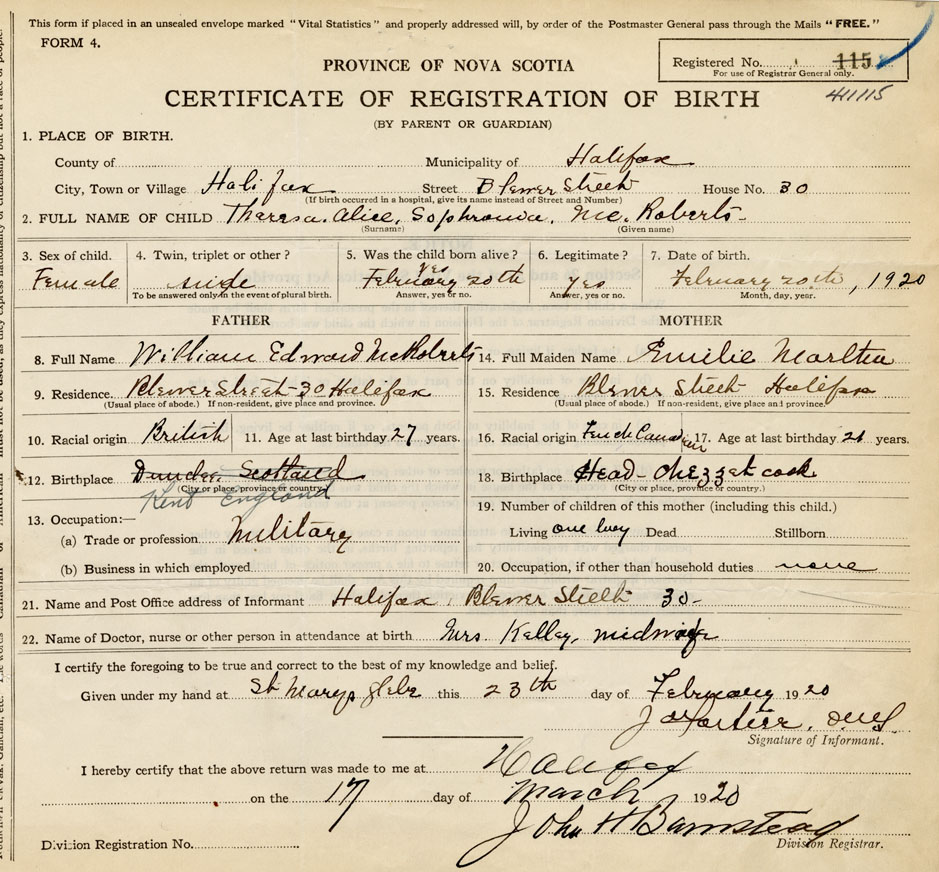 This form if placed in an unsealed envelope marked "Vital Statistics" and properly addressed will, by order of the Postmaster General pass through the Mails "FREE."
FORM 4.
Registered No. 115
For use of Registrar General only.
411115
PROVINCE OF NOVA SCOTIA
CERTIFICATE OF REGISTRATION OF BIRTH
(BY PARENT OR GUARDIAN)
1. PLACE OF BIRTH.
County of Municipality of Halifax
City, Town or Village Halifax Street Blewer Street House No. 30
(If birth occurred in a hospital, give its name instead of Street and Number)
2. FULL NAME OF CHILD Theresa. Alice, Sophronia, Mc. Roberts.
(Surname) (Given name)
3. Sex of child. 4. Twin, triplet or other? 5. Was the child born alive? 6. Legitimate? 7. Date of birth.
yes
Female February 20th yes February 20th, 1920
To be answered only in the event of plural birth. Answer, yes or no. Answer, yes or no. Month, day, year.
FATHER MOTHER
8. Full Name William Edward McRoberts 14. Full Maiden Name Emilie
9. Residence. Blewer Street 30 Halifax 15. Residence Blewer Street Halifax
(Usual place of abode.) If non-resident, give place and province. (Usual place of abode.) If non-resident, give place and province.
10. Racial origin British 11. Age at last birthday 27 years. 16. Racial origin French Canadian 17. Age at last birthday 21 years.
12. Birthplace Dundee Scotland 18. Birthplace Head-Chezzetcook
(City or place, province or country.) (City or place, province or country.)
Kent England
19. Number of children of this mother (including this child.)
13. Occupation:—
(a) Trade or profession Military Living one Dead Stillborn
(b) Business in which employed 20. Occupation, if other than household duties none
21. Name and Post Office address of Informant Halifax, Blewer Street 30-
22. Name of Doctor, nurse or other person in attendance at birth. Mrs. Kelley, midwife
I certify the foregoing to be true and correct to the best of my knowledge and belief.
Given under my hand at St Marys glebe this 23th day of February 1920
Signature of Informant.
I hereby certify that the above return was made to me at Halifax
on the 17 day of March 1920
John H Barnstead
Division Registration No. Division Registrar.